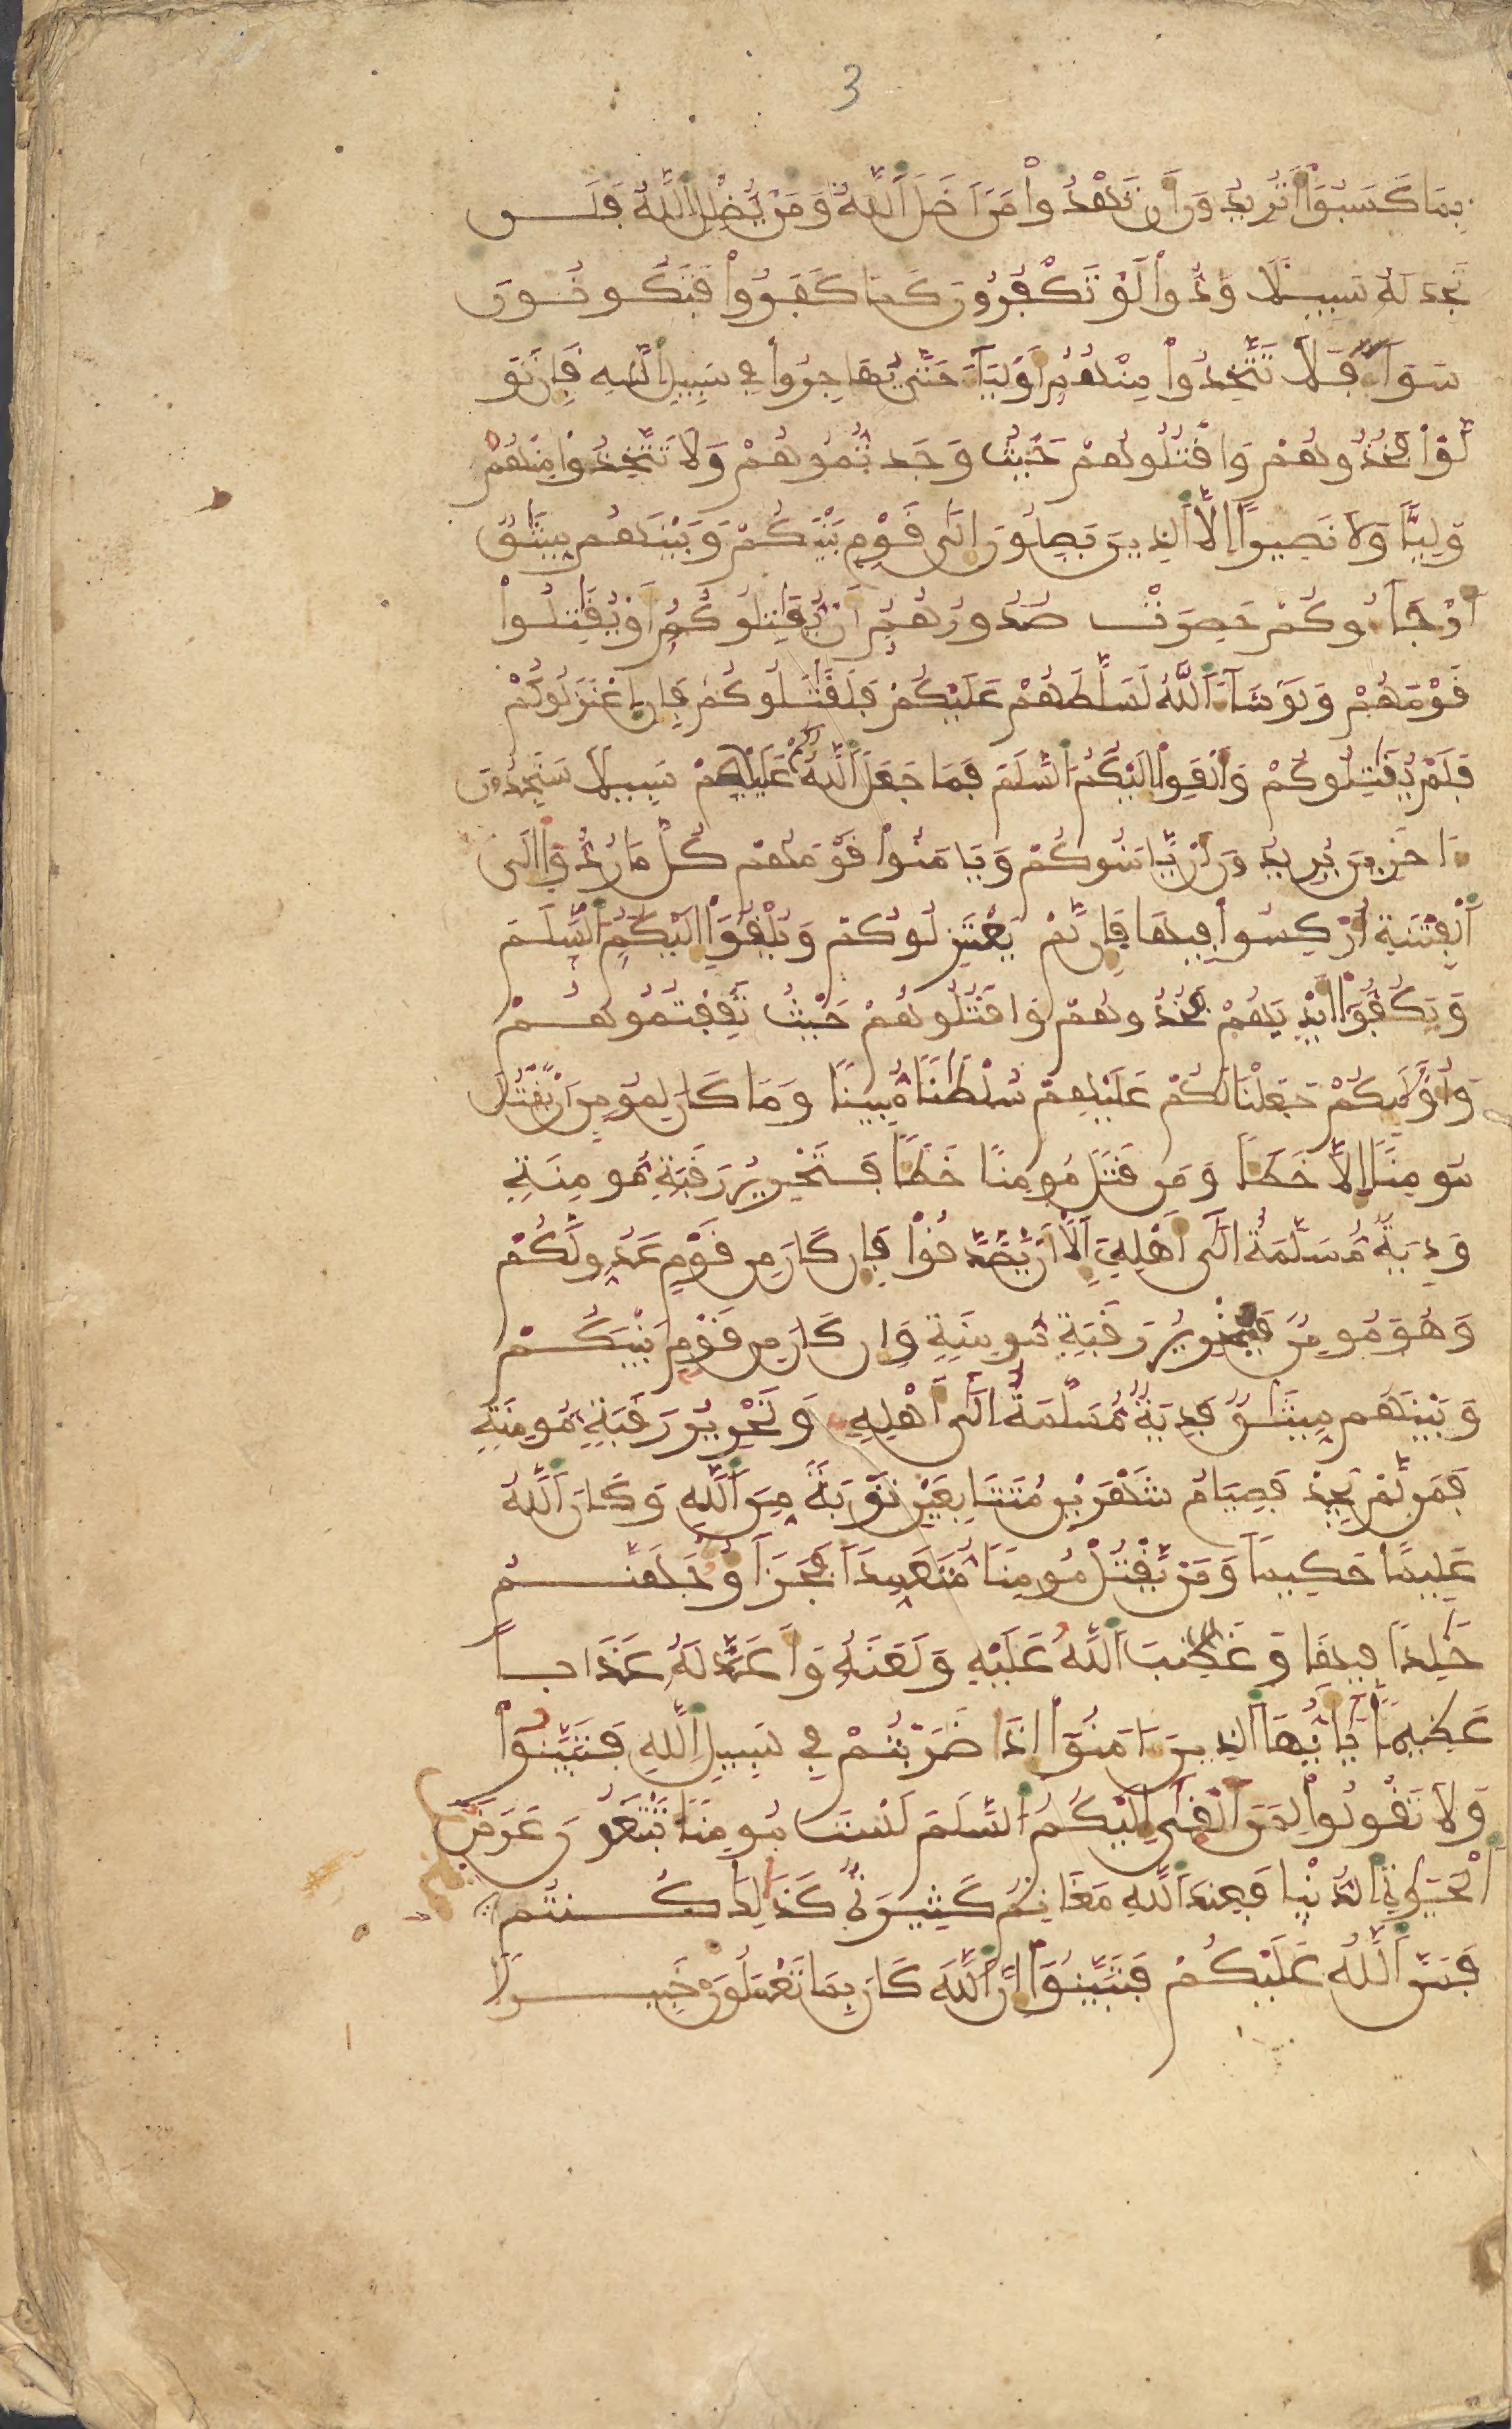 3
بِمَا كَسَبُوٓاْ أَتُرِيدُونَ أَن تَهْدُواْ مَنَ اَضَلَّ اَللَّهُ وَمَنْ يُّضْلِلِ اِللَّهُ فَلَن
تَجِدَ لَهُ سَبِيلًا وَدُّواْ لَوْ تَكْفُرُونَ كَمَا كَفَرُواْ فَتَكُونُونَ
سَوَآءً فَلَا تَتَّخِذُواْ مِنْهُمُۥٓ أَوْلِيَآءَ حَتَّىٰ يُهَاجِرُواْ فِي سَبِيلِ اِللَّهِ فَإِن تَوَ
لَّوْاْ فَخُذُوهُمْ وَاقْتُلُوهُمْ حَيْثُ وَجَدتُّمُوهُمْ وَلَا تَتَّخِذُواْ مِنْهُمْ
وَلِيًّا وَلَا نَصِيرًا إِلَّا اَلذِينَ يَصِلُونَ إِلَىٰ قَوْمِ بَيْنَكُمْ وَبَيْنَهُم مِّيثَٰقٌ
اَوْ جَآءُوكُمْ حَصِرَتْ صُدُورُهُمُۥٓ أَنْ يُّقَٰتِلُوكُمُۥٓ أَوْ يُقَٰتِلُواْ
قَوْمَهُمْ وَلَوْ شَآءَ اَللَّهُ لَسَلَّطَهُمْ عَلَيْكُمْ فَلَقَٰتَلُوكُمْ فَإِنِ اِعْتَزَلُوكُمْ
فَلَمْ يُقَٰتِلُوكُمْ وَأَلْقَوِاْ اِلَيْكُمُ اُلسَّلَمَ فَمَا جَعَلَ اَللَّهُ لكم عَلَيْهِمْ سَبِيلًا سَتَجِدُونَ
ءَاخَرِينَ يُرِيدُونَ أَنْ يَّامَنُوكُمْ وَيَامَنُواْ قَوْمَهُمْ كُلَّ مَا رُدُّوٓاْ إِلَى
اَلْفِتْنَةِ أُرْكِسُواْ فِيهَا فَإِن لَّمْ يَعْتَزِلُوكُمْ وَيُلْقُوٓاْ إِلَيْكُمُ اُلسَّلَمَ
وَيَكُفُّوٓاْ أَيْدِيَهُمْ فَخُذُوهُمْ وَاقْتُلُوهُمْ حَيْثُ ثَقِفْتُمُوهُمْ
وَأُوْلَٰٓئِكُمْ جَعَلْنَا لَكُمْ عَلَيْهِمْ سُلْطَٰنًا مُّبِينًا وَمَا كَانَ لِمُومِنٍ اَنْ يَّقْتُلَ
مُومِنًا اِلَّا خَطَـًٔا وَمَن قَتَلَ مُومِنًا خَطَـًٔا فَتَحْرِيرُ رَقَبَةٍ مُّومِنَةٍ
وَدِيَةٌ مُّسَلَّمَةٌ اِلَىٰٓ أَهْلِهِۦٓ إِلَّآ أَنْ يَّصَّدَّقُواْ فَإِن كَانَ مِن قَوْمٍ عَدُوٍّ لَّكُمْ
وَهُوَ مُومِنٌ فَتَحْرِيرُ رَقَبَةٍ مُّومِنَةٍ وَإِن كَانَ مِن قَوْمِ بَيْنَكُمْ
وَبَيْنَهُم مِّيثَٰقٌ فَدِيَةٌ مُّسَلَّمَةٌ اِلَىٰٓ أَهْلِهِ وَتَحْرِيرُ رَقَبَةٍ مُّومِنَةٍ
فَمَن لَّمْ يَجِدْ فَصِيَامُ شَهْرَيْنِ مُتَتَابِعَيْنِ تَوْبَةً مِّنَ اَللَّهِ وَكَانَ اَللَّهُ
عَلِيمًا حَكِيمًا وَمَنْ يَّقْتُلْ مُومِنًا مُّتَعَمِّدًا فَجَزَآؤُهُ جَهَنَّمُ
خَٰلِدًا فِيهَا وَغَضِبَ اَللَّهُ عَلَيْهِ وَلَعَنَهُ وَأَعَدَّ لَهُ عَذَابًا
عَظِيمًا يَٰٓأَيُّهَا اَلذِينَ ءَامَنُوٓاْ إِذَا ضَرَبْتُمْ فِي سَبِيلِ اِللَّهِ فَتَبَيَّنُواْ
وَلَا تَقُولُواْ لِمَنَ اَلْقَىٰٓ إِلَيْكُمُ اُلسَّلَمَ لَسْتَ مُومِنًا تَبْتَغُونَ عَرَضَ
اَلْحَيَوٰةِ اِلدُّنْيَا فَعِندَ اَللَّهِ مَغَانِمُ كَثِيرَةٌ كَذَٰلِكَ كُنتُم
فَمَنَّ اَللَّهُ عَلَيْكُمْ فَتَبَيَّنُوٓاْ إِنَّ اَللَّهَ كَانَ بِمَا تَعْمَلُونَ خَبِيرًا